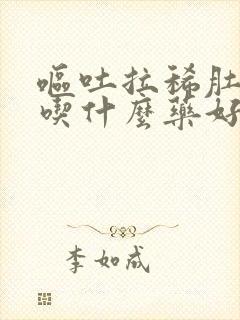 嘔吐拉稀肚
喫什麼藥好
李如成